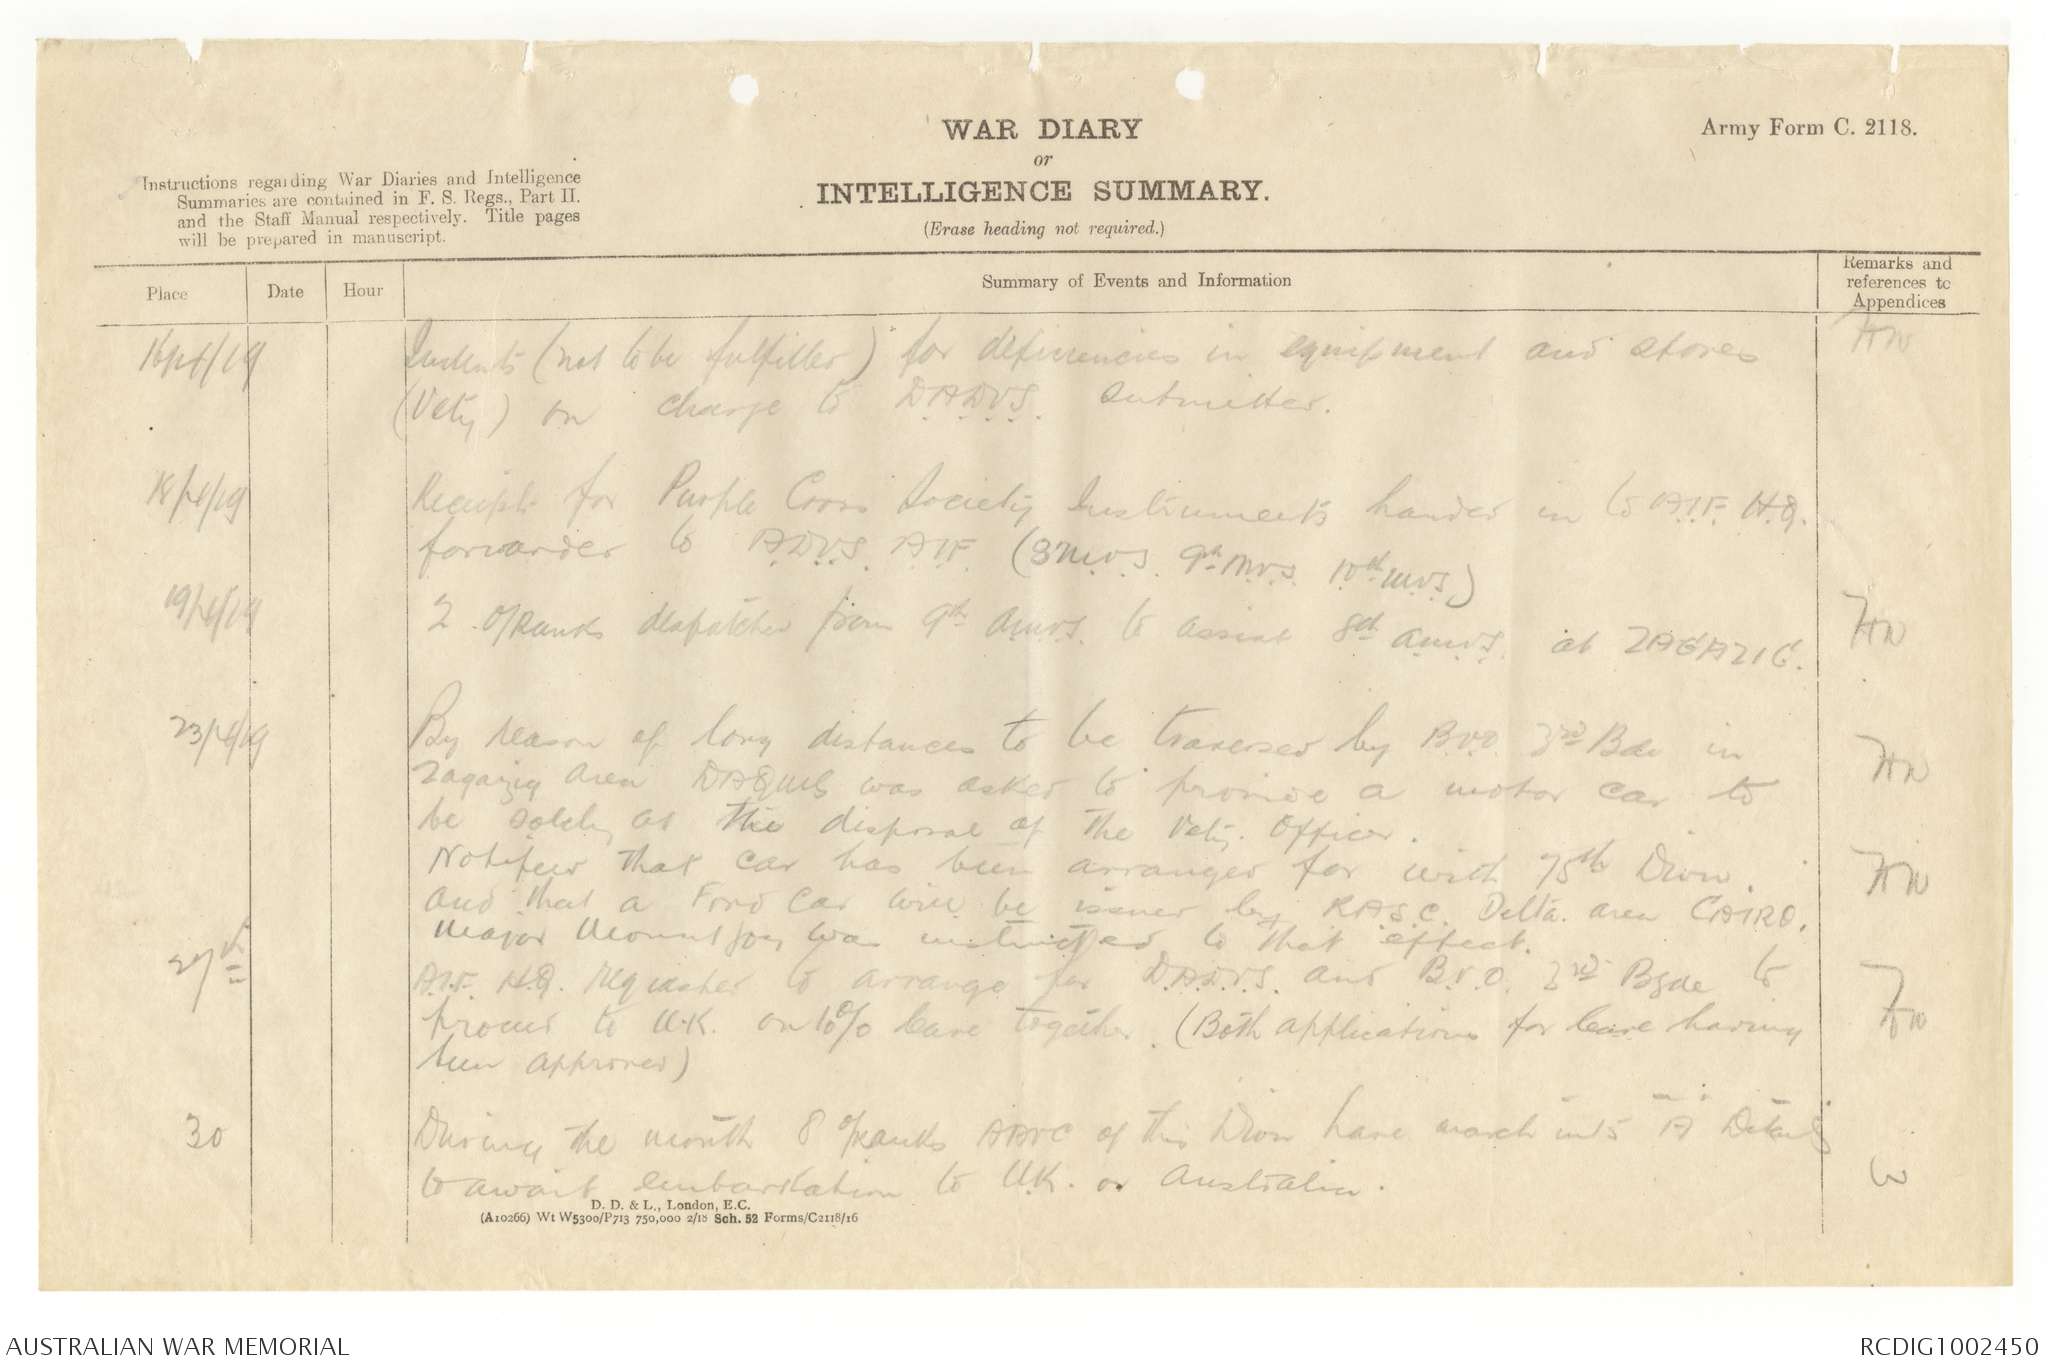 WAR DIARY
or
INTELLIGENCE SUMMARY.
(Erase heading not required.)
Army Form C. 2118.
Instructions regarding War Diaries and Intelligence
Summaries are contained in F. S. Regs., Part II.
and the Staff Manual respectively. Title pages
will be prepared in manuscript.
Place Date Hour Summary of Events and Information Remarks and references to Appendices
16/4/19 Indents (not to be fulfilled) for deficiencies in equipment and stores
(Vety) on charge to D.A.D.V.S. submitted.
18/4/19 Receipts for Purple Cross Society Instruments handed in to A.I.F. H.Q.
forwarded to A.D.V.S. A.I.F. (8 M.V.S. 9th M.V.S. 10th M.V.S.)
19/4/19 2 O/Ranks despatched from 9th A.M.V.S. to assist 8th A.M.V.S. at ZAGAZIG.
23/4/19 By reason of long distances to be traversed by B.V.O. 3rd Bde in
Zagazig area DAQMG was asked to provide a motor car to
be solely at the disposal of the Vety. Officer.
Notified that car has been arranged for with 75th Divn.
and that a Ford Car will be issued by R.A.S.C. Delta area CAIRO.
Major Mountjoy was instructed to that effect.
27th A.I.F. H.Q. requested to arrange for D.A.D.V.S. and B.V.O. 3rd Bgde to
proceed to U.K. on 10% leave together. (Both applications for leave having
been approved)
30 During the month 8 O/Ranks AAVC of this Divn have march into "A" Details
to await embarkation to U.K. or Australia.
D. D. & L., London, E.C.
(A10266) Wt W5300/P713 750,000 2/18 Sch. 52 Forms/C2118/16
AUSTRALIAN WAR MEMORIAL
RCDIG1002450